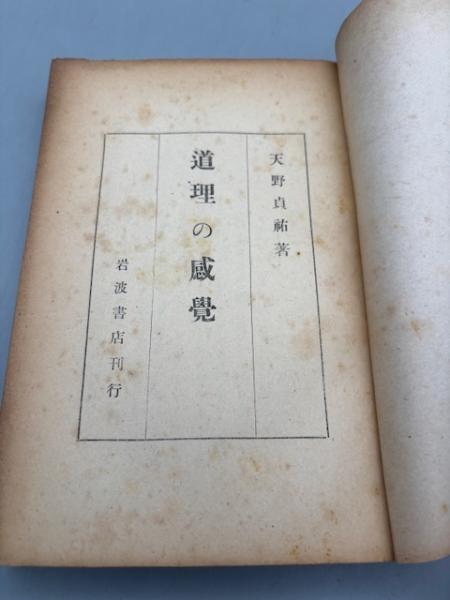 天野貞祐著
道理の感覺
岩波書店刊行